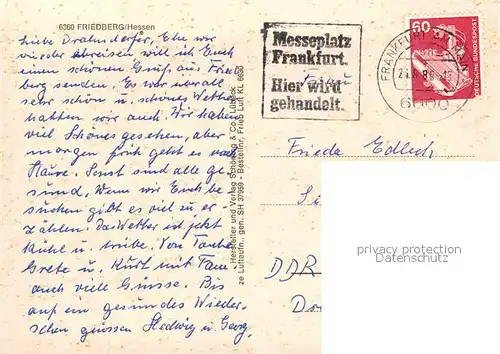 6360 FRIEDBERG/Hessen
Liebe Drahndorfer, Ehe wir
wieder abreisen will ich Euch
einen schönen Gruß aus Fried
berg senden. Es war überall
sehr schön u. schönes Wetter
hatten wir auch. Wir haben
viel Schönes gesehen, aber
morgen früh geht es nach
Hause. Sonst sind alle ge-
sund, Wenn wir Euch be
suchen gibt es viel zu er-
zählen. Das Wetter ist jetzt
kühl u. trübe. Von Tante
Grete u. Kurt mit Fam
auch viele Grüsse. Bis
auf ein gesundes Wieder-
sehen grüssen Hedwig u. Georg.
Hersteller und Verlag Schöning & Co., Lübeck
ze Luftaufn. gen. SH 37959 - Bestellnr. Frieb Luft KL 6650
Messeplatz
Frankfurt.
Hier wird
gehandelt.
FRANKFURT
6000
60
DEUTSCHE BUNDESPOST
Frau
Frieda
DDR
privacy protection
Datenschutz